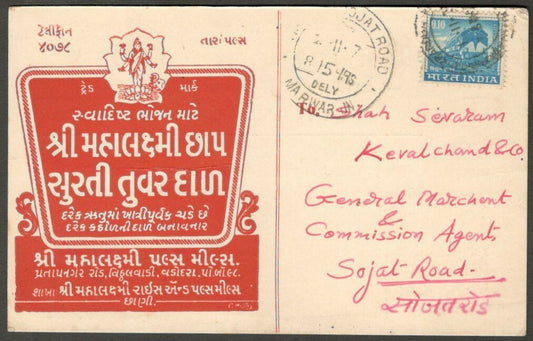 ટેલીફોન
૪૦૭૮
તારાઃ પલ્સ
ટ્રેડ માર્ક
સ્વાદિષ્ટ ભોજન માટે
શ્રી મહાલક્ષ્મી છાપ
સુરતી તુવર દાળ
દરેક ઋતુમાં ખાત્રીપૂર્વક ચડે છે
દરેક કઠોળની દાળ બનાવનાર
શ્રી મહાલક્ષ્મી પલ્સ મીલ્સ.
પ્રતાપનગર રોડ, વિઠ્ઠલવાડી, વડોદરા. પો.બો.૯૮.
શાખા શ્રી મહાલક્ષ્મી રાઇસ એન્ડ પલ્સ મીલ્સ
છાણી.
SOJAT ROAD
8.15
DELY
MARWAR JN
0.10
भारत INDIA
To,
Shah Sevaram
Kevalchand & Co
General Merchent
&
Commission Agents
Sojat Road
सोजत रोड